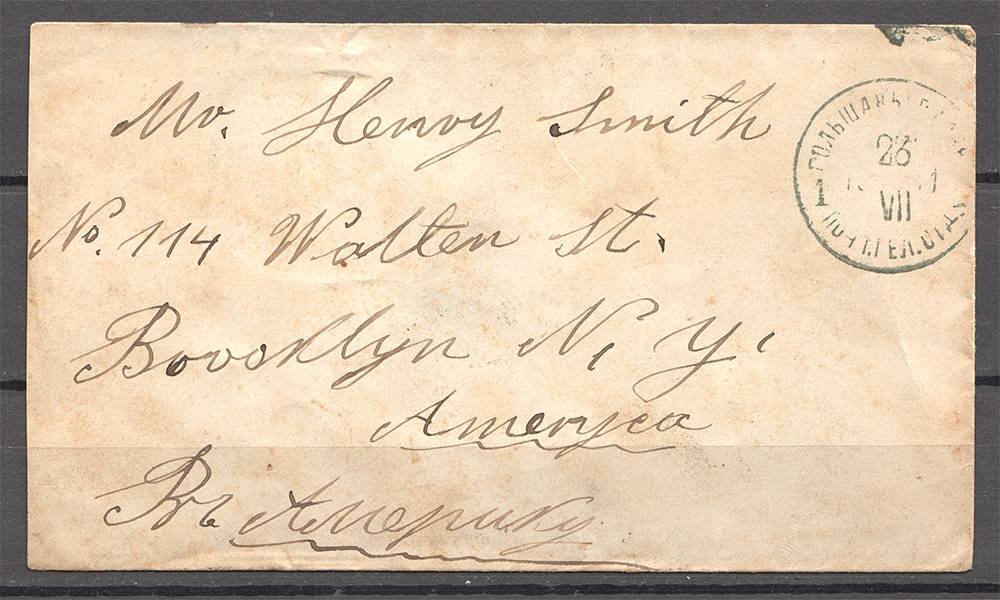 Mr. Henry Smith
No. 114 Walten St.
Brooklyn N. Y.
Ameryca
Въ Америку
23
VII
1
ПОЧТ.ТЕЛ.ОТД.